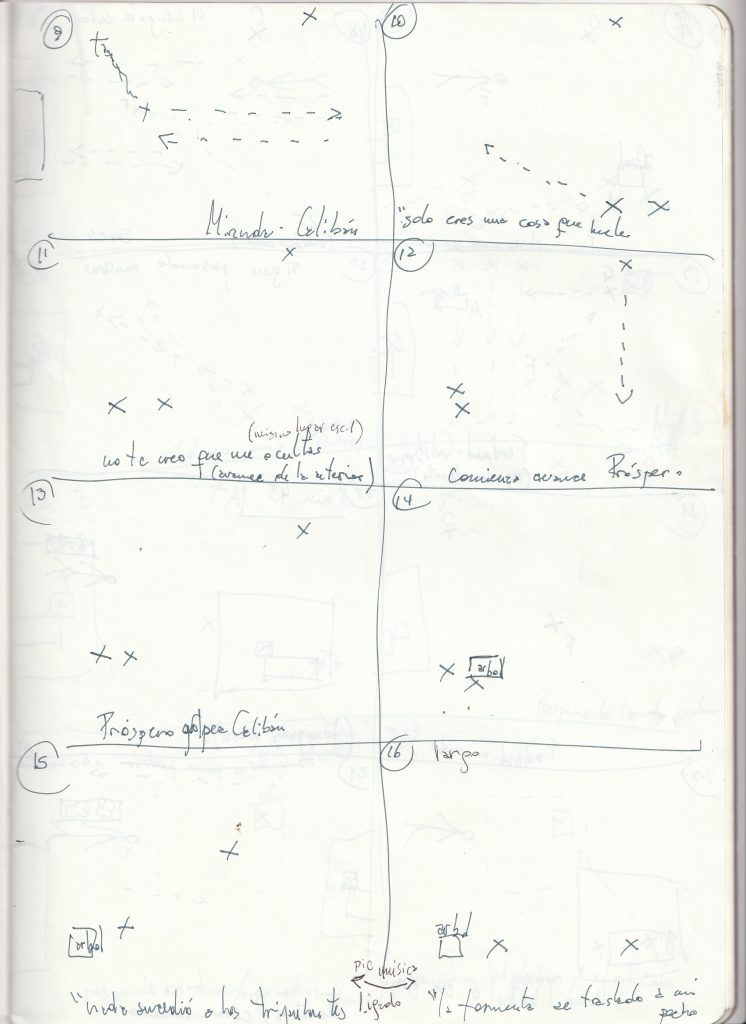 9
10
Miranda - Calibán
"solo eres una cosa que huele
11
12
(mismo lugar esc. 1)
no te creo que me ocultas
(avance de la anterior)
Comienza avance Próspero
13
14
árbol
Próspero golpea Calibán
15
16
largo
árbol
árbol
pie música
ligado
"nada sucedió a los tripulantes
"la tormenta se traslado a mi
pecho